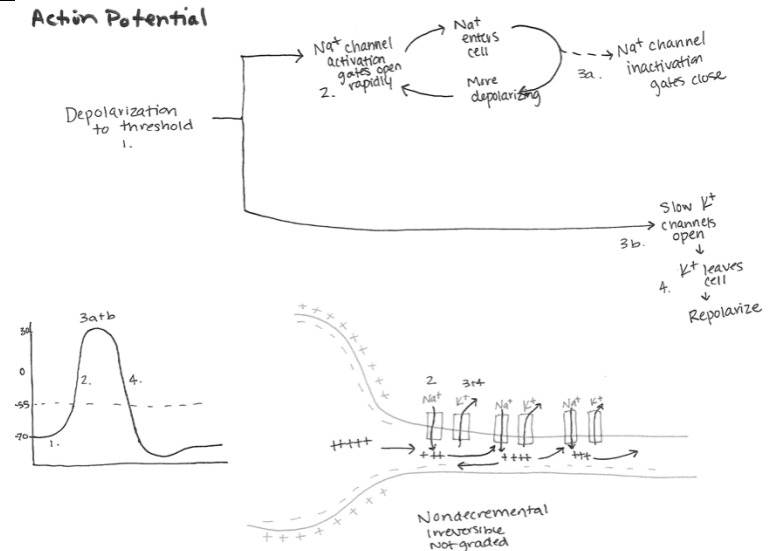 Action Potential
Depolarization
to threshold
1.
Na+ channel
activation
gates open
rapidly
2.
Na+
enters
cell
More
depolarizing
3a.
Na+ channel
inactivation
gates close
3b.
Slow K+
channels
open
4.
K+ leaves
cell
Repolarize
3a+b
30
0
-55
-70
1.
2.
4.
+ + + + + + +
2
3+4
Na+
K+
Na+
K+
Na+
K+
+++++
+++
++++
+++
Nondecremental
Irreversible
Not graded